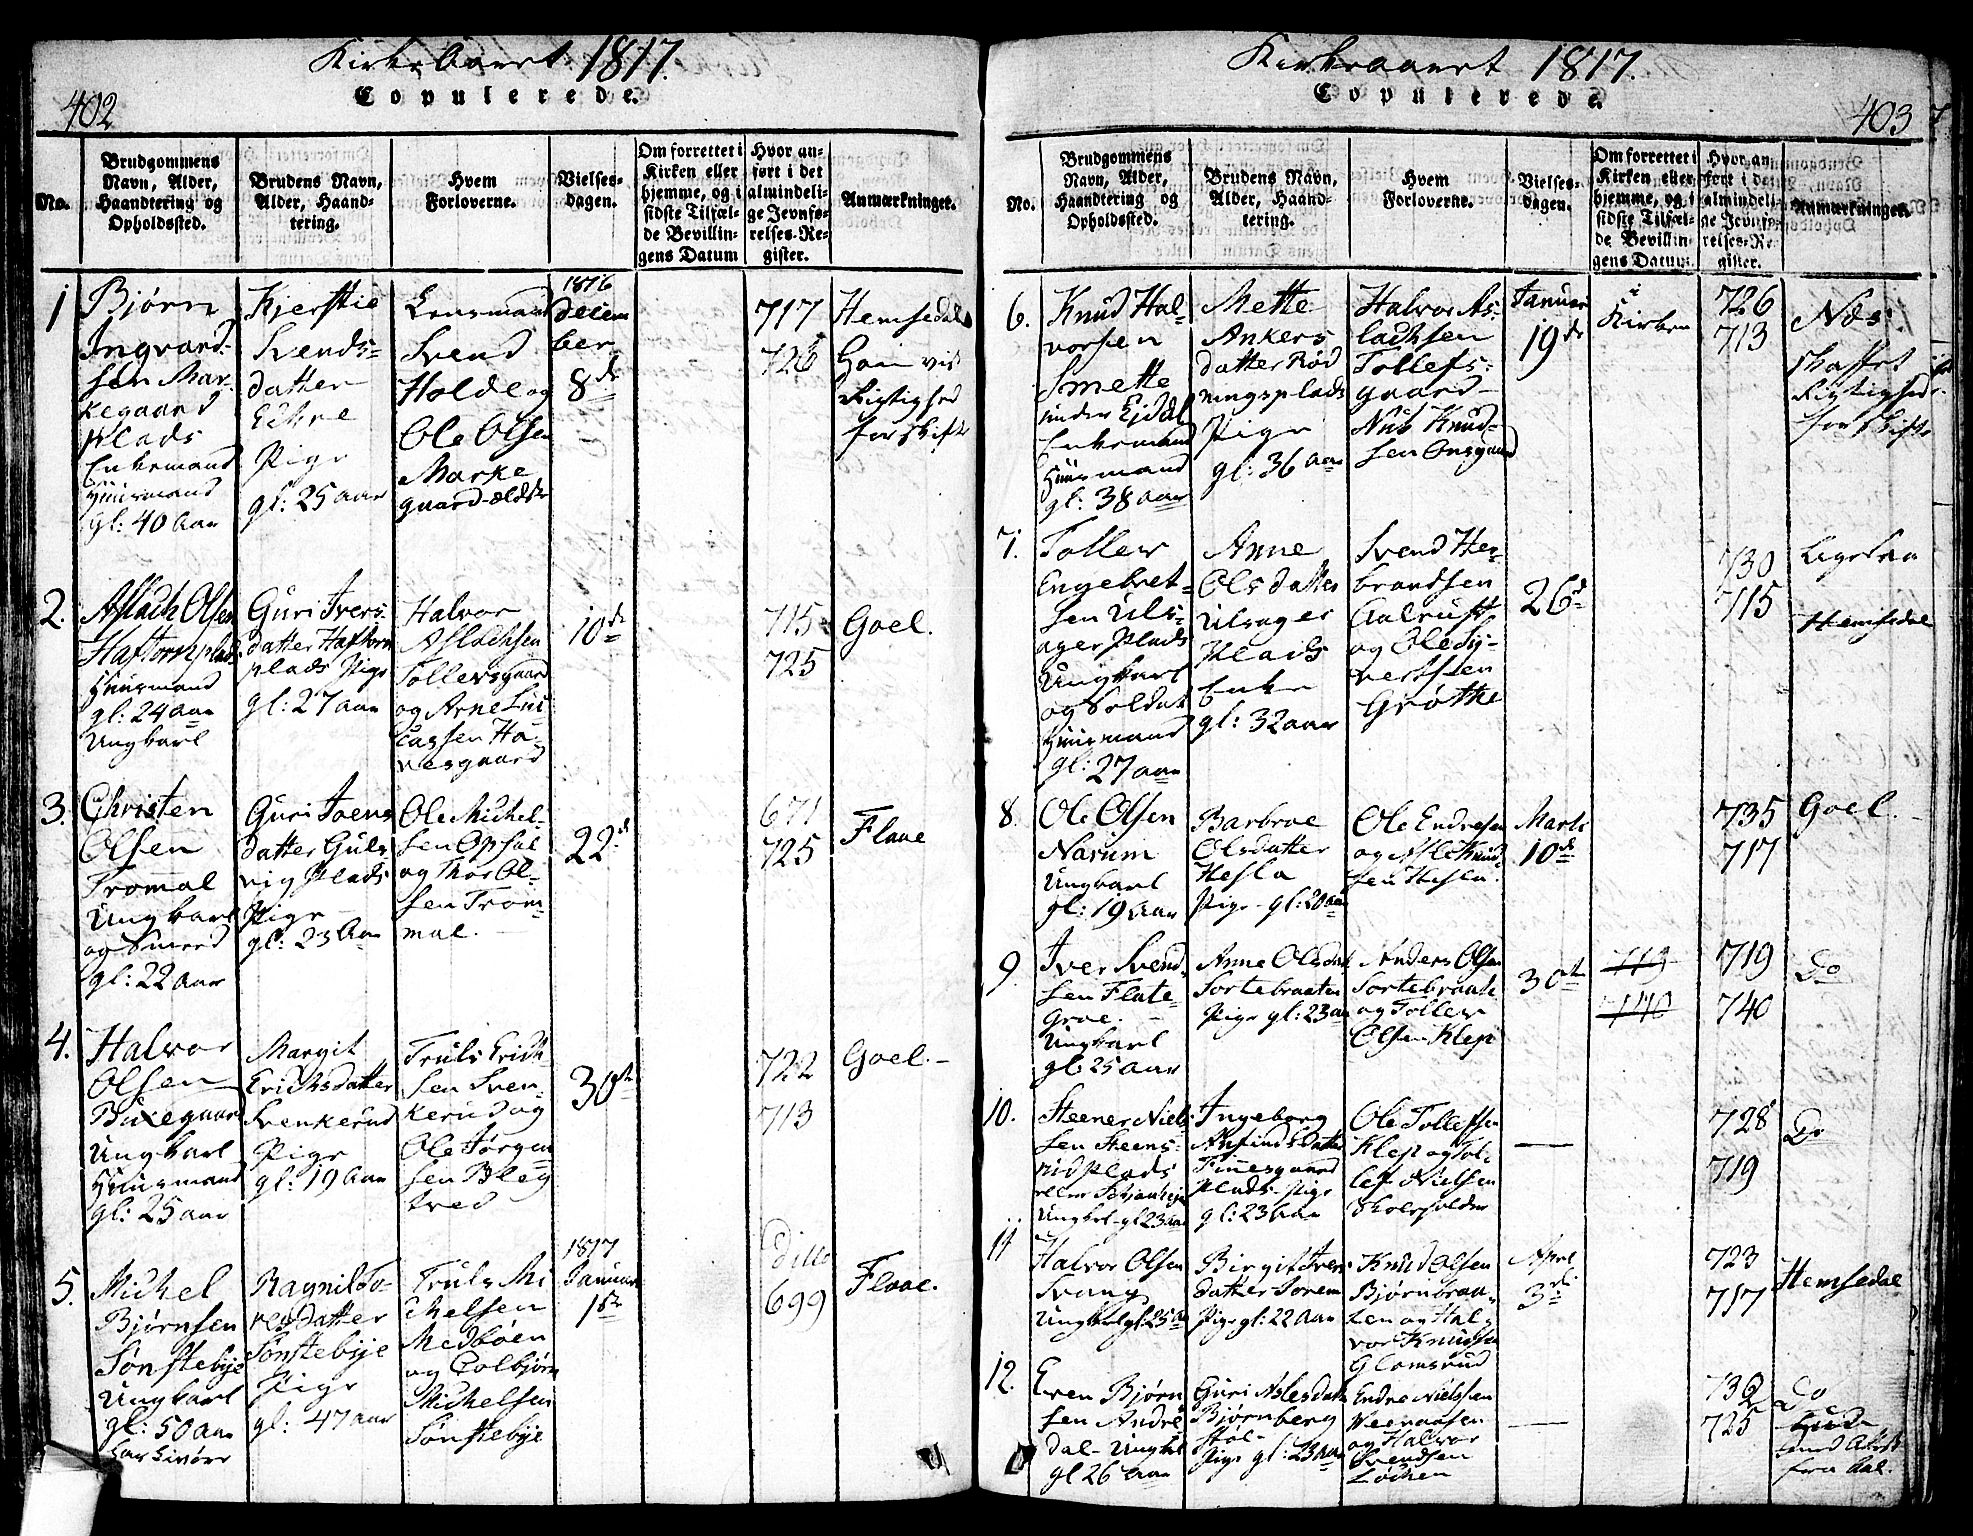 Kirkeaaret 1817.
Copulerede.
402
No.
Brudgommens
Navn, Alder,
Haandtering og
Opholdssted.
Brudens Navn,
Alder, Haand-
tering.
Hvem
Forloverne.
Vielses-
dagen.
Om forrettet i
Kirken eller
hjemme, og i
sidste Tilfæl-
de Bevillin-
gens Datum
Hvor an-
ført i det
almindeli-
ge Jevnfø-
relses-Re-
gister.
Anmærkninger.
1
Bjørn
Ingvard-
sen Mar-
kegaard
Plads
Enkemand
Huusmand
gl: 40 Aar
Kjerstie
Svends-
datter
Eikre
Pige
gl: 25 aar
Lensmand
Svend
Holde og
Ole Olsen
Marke
gaard ældste
1816
Decem
ber
8de
717
726
Hemsedal
Rigtighed
for Skifte
2.
Aslach Olsen
Haftornplads
Huusmand
gl: 24 aar
Ungkarl
Guri Ivers-
datter Haftorn
plads Pige
gl: 27 aar
Halvor
Aslachsen
Tollevsgaard
og Arne Lu
cassen Ha-
vesgaard
10de
715
725
Goel.
3.
Christen
Olsen
Tromal
Ungkarl
og Smed
gl: 22 aar
Guri Joens
datter Guls
vig Plads
Pige
gl: 23 Aar
Ole Michel-
sen Opsal
og Thor Ol-
sen Trom-
mal.
22de
671
725
Flaae
4.
Halvor
Olsen
Buxegaard
Ungkarl
Huusmand
gl: 25 aar
Margit
Erichsdatter
Svenkerud
Pige
gl: 19 Aar
Truls Erich
sen Sven-
kerud og
Ole Jørgen
sen Bleg
tved
30te
722
713
Goel.
5.
Michel
Bjørnsen
Sønstebye
Ungkarl
gl: 50 aar
Ragnild To-
resdatter
Sønstebye
Pige
gl: 47 aar
Truls Mi
chelsen
Medbøen
og Colbjørn
Michelsen
Sønstebye
1817
Januar
1ste
Ditto
699
Flaae.
Kirkeaaret 1817.
Copulerede.
403
No.
Brudgommens
Navn, Alder,
Haandtering og
Opholdssted.
Brudens Navn,
Alder, Haand-
tering.
Hvem
Forloverne.
Vielses-
dagen.
Om forrettet i
Kirken eller
hjemme, og i
sidste Tilfæl-
de Bevillin-
gens Datum.
Hvor an-
ført i det
almindeli-
ge Jevnfø-
relses-Re-
gister.
Anmærkninger.
6.
Knud Hal-
vorsen
Smette
under Ejdal
Enkemand
Huusmand
gl: 38 aar
Mette
Ankers
datter Rød
ningsplads
Pige
gl: 36 aar
Halvor As-
lachsen
Tollefs-
gaard
Nub Knud-
sen Onsgaard
Januar
19de
i
Kirken
726
713
Næs.
skaffet
Rigtighed
for Skifte
7.
Tollew
Engebret-
sen Uls-
ager Plads
Ungkarl
og Soldat
Huusmand
gl: 27 aar
Anne
Olsdatter
Ulsager
Plads
Enke
gl: 32 aar
Svend Her-
brandsen
Aalrust
og Ole Sy-
vertsen
Grøthe
26de
730
715
Ligesaa
Hemsedal
8.
Ole Olsen
Narum
Ungkarl
gl: 19 Aar
Barbroe
Olsdatter
Hesla
Pige gl: 20 aar
Ole Endresen
og Asle Knud
sen Hesla.
Marts
10de
735
717
Goel.
9.
Iver Svend
sen Flate-
Groe.
Ungkarl
gl 25 aar
Anne Olsdat
Sortebraaten
Pige gl: 23 aar
Anders Olsen
Sortebraate
og Tollew
Olsen Klep
30te
719
740
719
740
Do
10.
Steener Niels
sen Steens-
rud Plads
Ungkarl gl 23 aar
Ingeborg
Arfindsdatter
Finnesgaard
plads Pige
gl: 23 Aar
Ole Tollefsen
Klep og Tol-
lef Nielsen
Skoleholder
728
719
Do
11
Halvor Olsen
Svang
Ungkarl gl 25 aar
Birgit Ivers
datter Torem
Pige gl: 22 Aar
Knud Olsen
Bjørnbraa-
ten og Hal-
vor Knudsen
Glomsrud
April
3de
723
717
Hemsedal
12.
Even Bjørn
sen André
dal Ungkarl
gl 26 aar
Guri Aslesdatt
Bjørnberg
Støl
Pige gl: 23 aar
Endre Nielsen
og Halvor
Svendsen
Løken
732
725
Do
fra Aal.